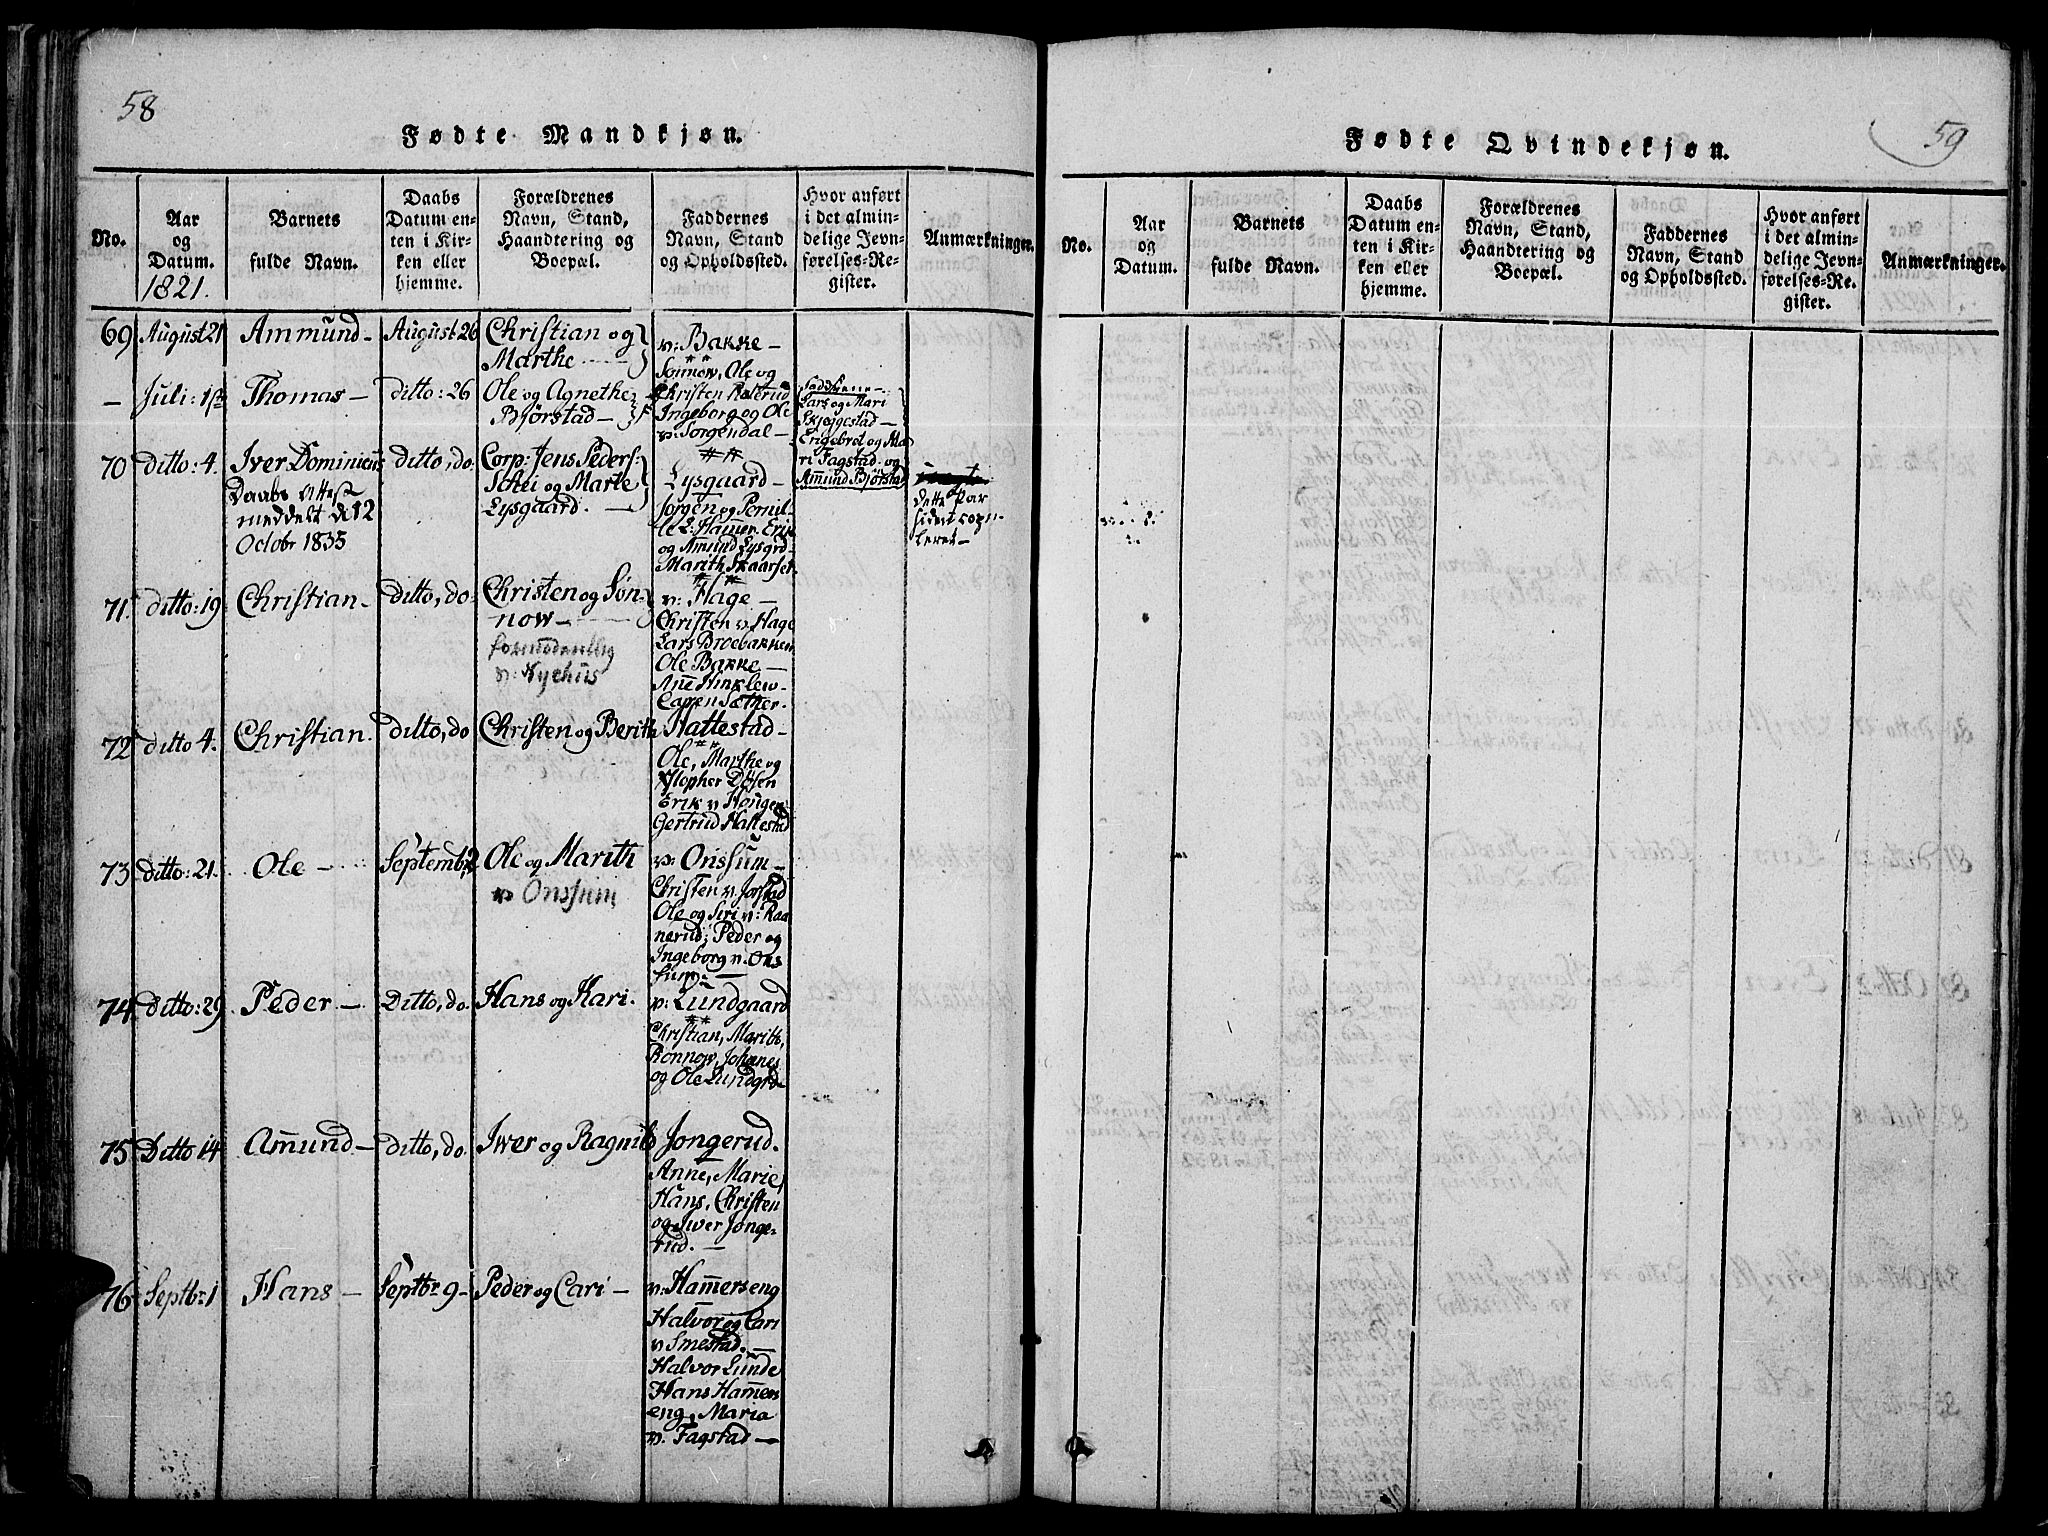 58
Fødte Mandkjøn.
No.
Aar
og
Datum.
1821.
Barnets
fulde Navn.
Daabs
Datum en-
ten i Kir-
ken eller
hjemme.
Forældrenes
Navn, Stand,
Haandtering og
Boepæl.
Faddernes
Navn, Stand
og Opholdssted.
Hvor anført
i det almin-
delige Jevn-
førelses-Re-
gister.
Anmærkninger.
69 August 21 Ammund – August 26 Christian og
Marthe
v: Bakke –
Ole og
Christen
Ingeborg og Ole
v: Sorgendal –
– Juli: Thomas – ditto: 26 Ole og Agnethe
Bjørstad –
Fadderne –
Lars og Mari
Skjeggestad –
Engebret og Ma
ri Fagstad og
Amund Bjørsta
70 ditto: 4. Iver Dominicus ditto, do: Corp: Jens Peders:
Schei og Marte
Lysgaard. –
Daabs Attest
meddelt d 12
Octobr 1835
Lysgaard –
Jørgen og Pernil
le L: Hammer. Erik
og Amund Lysgrd –
Marith Skaarset.
dette Par
sident copu-
leret –
71. ditto: 19 Christian – ditto, do: Christen og Søn-
now –
formodentlig
v: Nyehus
v: Hage –
Christen v: Hage
Lars Broebakken
Ole Bakke –
Anne
Sæther.
72 ditto 4. Christian. ditto, do Christen og Berith Hattestad –
Ole, Marthe og
Døsen
Erik v
Gertrud Hattestad
73 ditto: 21. Ole – Septembr 2 Ole og Marith
v: Onssum
v: Onssum –
Christen v. Jorstad
Ole og Siri v: Raa
nerud; Peder og
Ingeborg v: Ons
sum –
74 ditto: 29 Peder – Ditto, do. Hans og Kari. v: Lundgaard
Christian, Marith,
Ronnow, Johanes
og Ole Lundgrd –
75 Ditto 14 Amund – ditto, do. Iwer og Ragnild Jongerud.
Anne, Marie,
Hans, Christen
og Iwer Jonge-
rud. –
76 Septbr: 1 Hans – Septbr 9 – Peder og Cari – v: Hammerseng
Halvor og Cari
v Smestad. –
Halvor Lunde
Hans Hammers
eng, Maria
v. Fagstad –
59
Fødte Qvindekjøn.
No.
Aar
og
Datum.
Barnets
fulde Navn.
Daabs
Datum en-
ten i Kir-
ken eller
hjemme.
Forældrenes
Navn, Stand,
Haandtering og
Boepæl.
Faddernes
Navn, Stand
og Opholdssted.
Hvor anført
i det almin-
delige Jevn-
førelses-Re-
gister.
Anmærkninger.